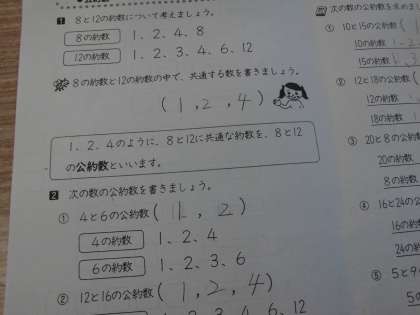 ●公約数
1 8と12の約数について考えましょう。
8の約数 1、2、4、8
12の約数 1、2、3、4、6、12
8の約数と12の約数の中で、共通する数を書きましょう。
(1,2,4)
1、2、4のように、8と12に共通な約数を、8と12
の公約数といいます。
2 次の数の公約数を書きましょう。
① 4と6の公約数(1,2)
4の約数 1、2、4
6の約数 1、2、3、6
② 12と16の公約数(1,2,4)
次の数の公約数を求めま
① 10と15の公約数(
10の約数
15の約数
② 12と18の公約数(
12の約数
18の約数
③ 20と8の公約数
20の約数
8の約数
④ 16と24の公
16の約
24の約
⑤ 5と9